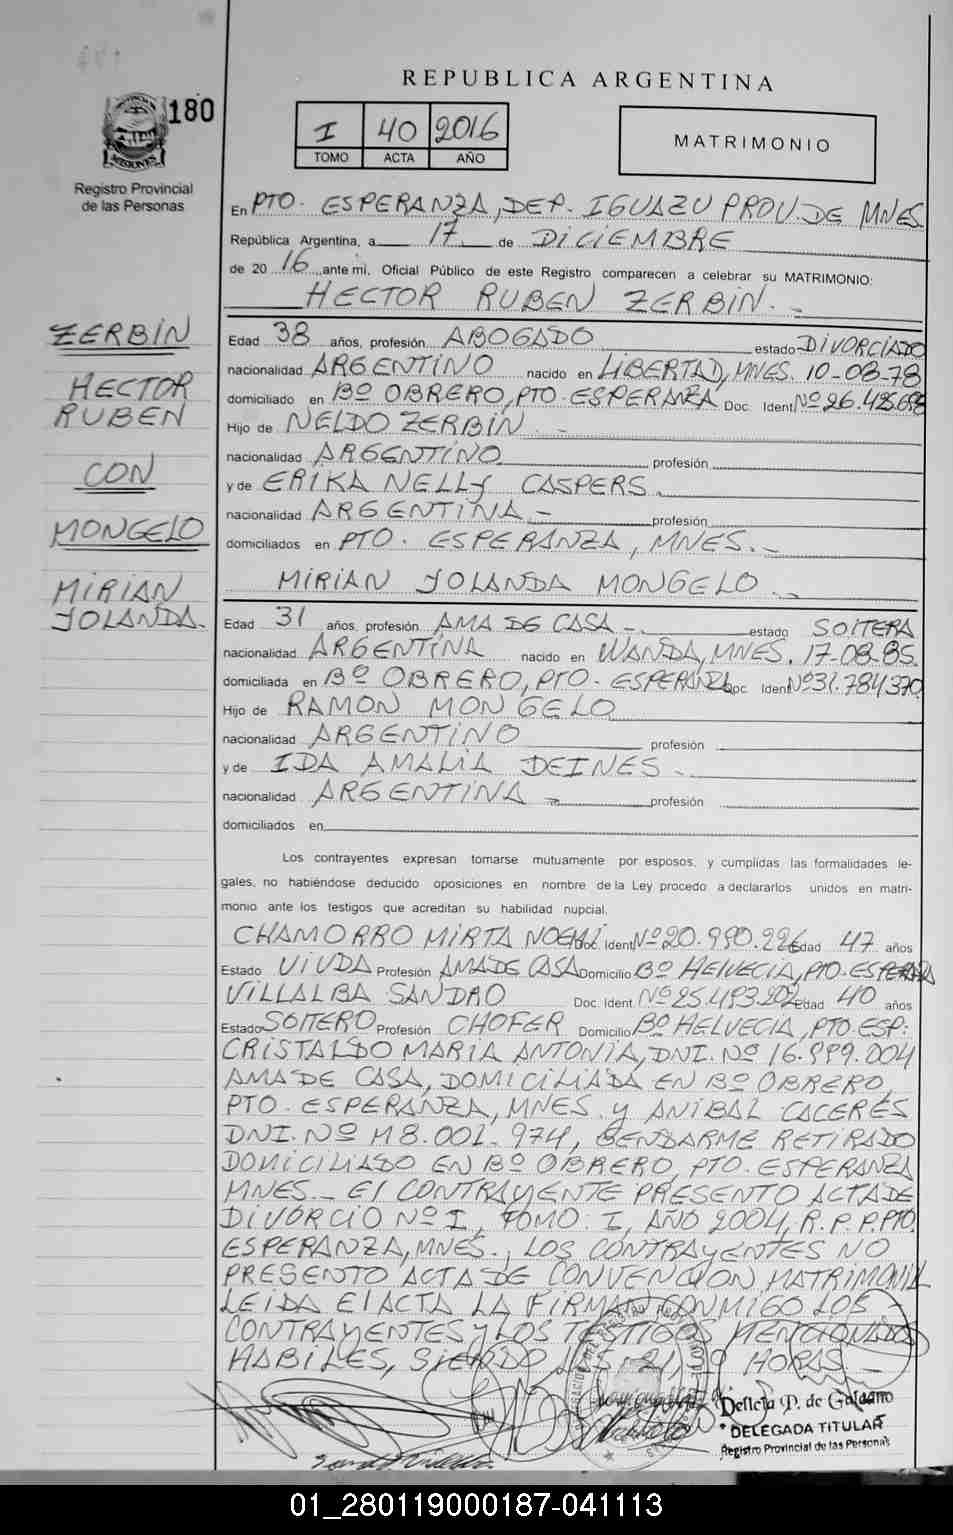 REPUBLICA ARGENTINA
180
I 40 2016
TOMO ACTA AÑO
MATRIMONIO
MISIONES
Registro Provincial
de las Personas
En PTO. ESPERANZA, DEP. IGUAZU PROV. DE MNES.
República Argentina, a 17 de DICIEMBRE
de 2016, ante mi, Oficial Público de este Registro comparecen a celebrar su MATRIMONIO:
HECTOR RUBEN ZERBIN. -
ZERBIN
HECTOR
RUBEN
CON
MONGELO
MIRIAN
YOLANDA.
Edad 38 años, profesión ABOGADO estado DIVORCIADO
nacionalidad ARGENTINO nacido en LIBERTAD, MNES. 10-08-78
domiciliado en Bº OBRERO, PTO. ESPERANZA Doc. Ident. Nº 26.
Hijo de NELDO ZERBIN -
nacionalidad ARGENTINO profesión
y de ERIKA NELLY CASPERS.
nacionalidad ARGENTINA - profesión
domiciliados en PTO. ESPERANZA, MNES. -
MIRIAN YOLANDA MONGELO. -
Edad 31 años, profesión AMA DE CASA -. estado SOLTERA
nacionalidad ARGENTINA nacido en WANDA, MNES. 17-08-85.
domiciliada en Bº OBRERO, PTO. ESPERANZA Doc. Ident. Nº 31.784.370
Hijo de RAMON MONGELO
nacionalidad ARGENTINO profesión
y de IDA AMALIA DEINES -
nacionalidad ARGENTINA - profesión
domiciliados en
Los contrayentes expresan tomarse mutuamente por esposos, y cumplidas las formalidades le-
gales, no habiéndose deducido oposiciones en nombre de la Ley procedo a declararlos unidos en matri-
monio ante los testigos que acreditan su habilidad nupcial.
CHAMORRO MIRTA NOEMI Doc. Ident. Nº 20.990.226 Edad 47 años
Estado VIUDA Profesión AMA DE CASA Domicilio Bº HELVECIA, PTO. ESPERANZA
VILLALBA SANDRO Doc. Ident. Nº 25.493.202 Edad 40 años
Estado SOLTERO Profesión CHOFER Domicilio Bº HELVECIA, PTO. ESP:
CRISTALDO MARIA ANTONIA, DNI. Nº 16.999.004
AMA DE CASA, DOMICILIADA EN Bº OBRERO,
PTO. ESPERANZA, MNES. Y ANIBAL CACERES
DNI. Nº M8.001.974, GENDARME RETIRADO
DOMICILIADO EN Bº OBRERO, PTO. ESPERANZA
MNES. - El CONTRAYENTE PRESENTO ACTA DE
DIVORCIO Nº I, TOMO: I, AÑO 2004, R.P.P. PTO.
ESPERANZA, MNES., LOS CONTRAYENTES NO
PRESENTO ACTA DE CONVENCION MATRIMONIAL
LEIDA El ACTA LA FIRMAN CONMIGO LOS
CONTRAYENTES Y LOS TESTIGOS MENCIONADOS
HABILES, SIENDO LAS 21,00 HORAS -
Delicia P. de Galeano
DELEGADA TITULAR
Registro Provincial de las Personas
01_280119000187-041113